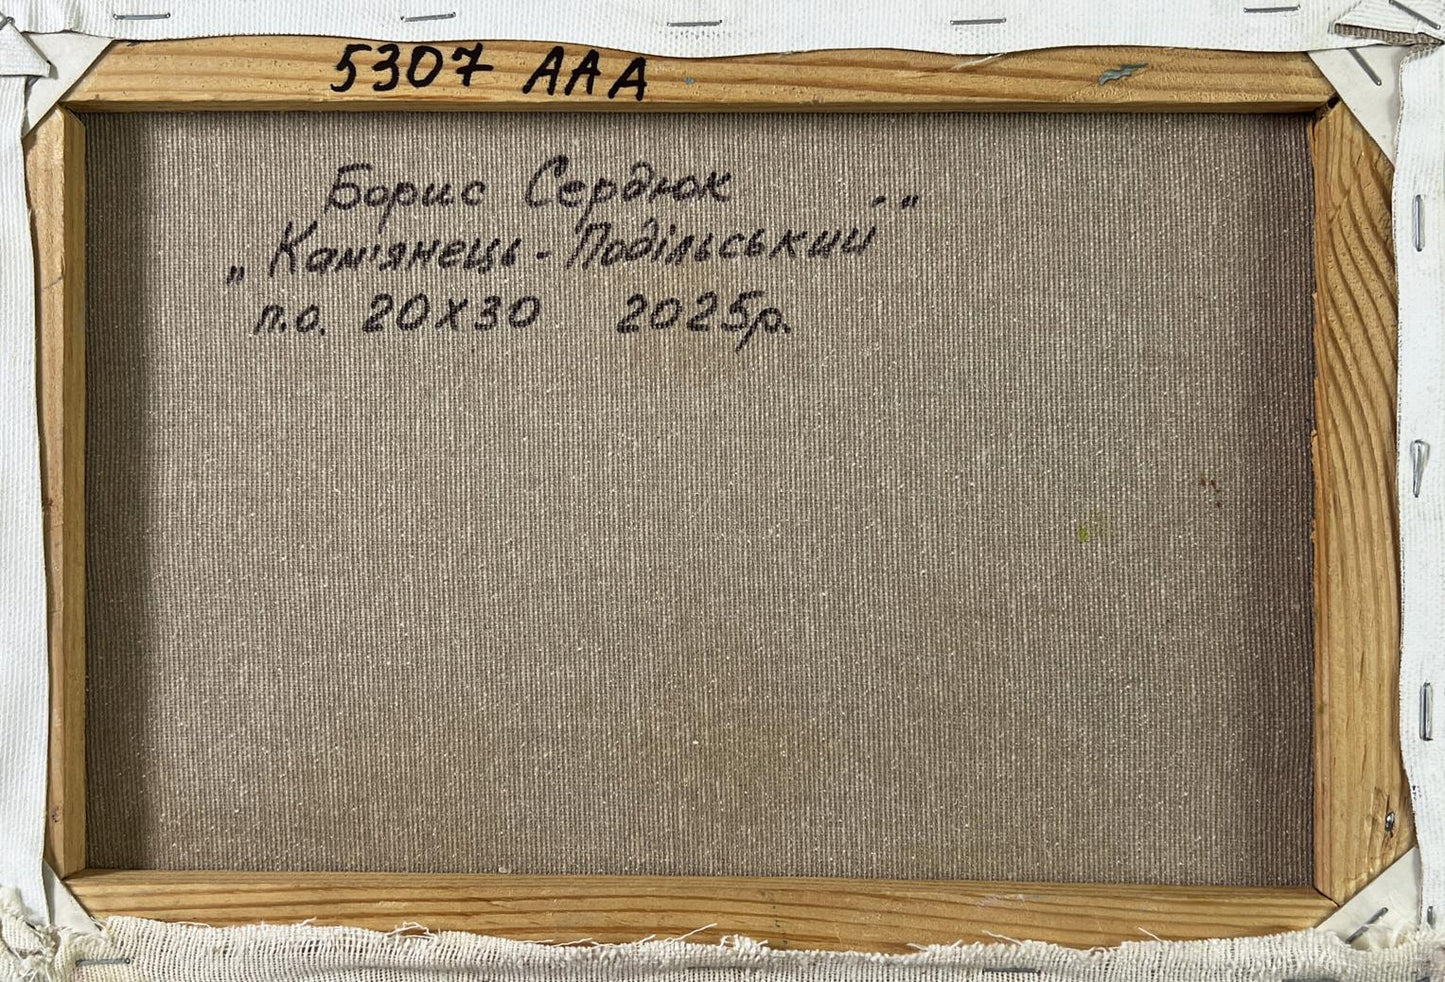 5307 AAA
Борис Сердюк
„Кам'янець-Подільський"
п.о. 20х30 2025р.